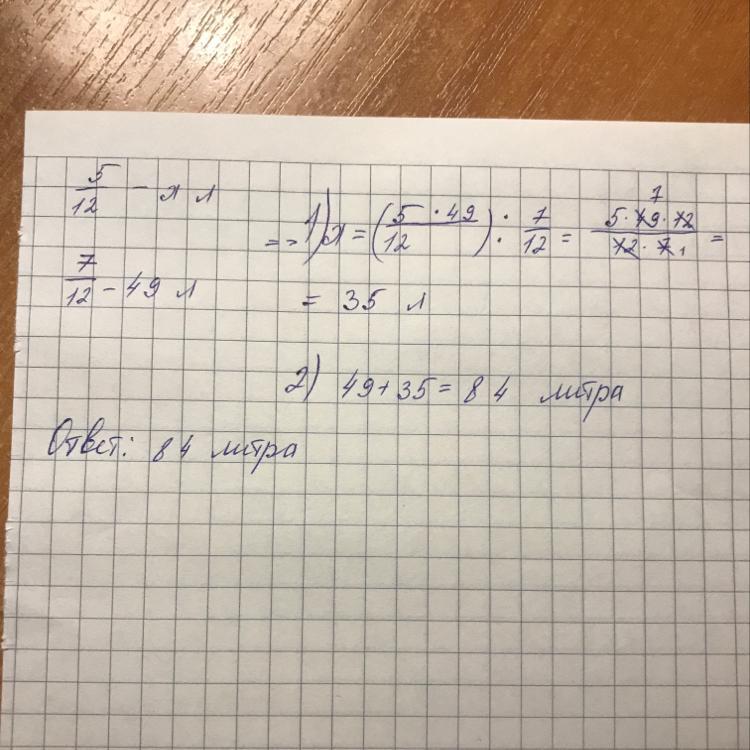 5/12 – х л
7/12 – 49 л
=> 1) х = (5/12 · 49) : 7/12 = 5·49·12/12·7 = 7 1
= 35 л
2) 49 + 35 = 84 литра
Ответ: 84 литра